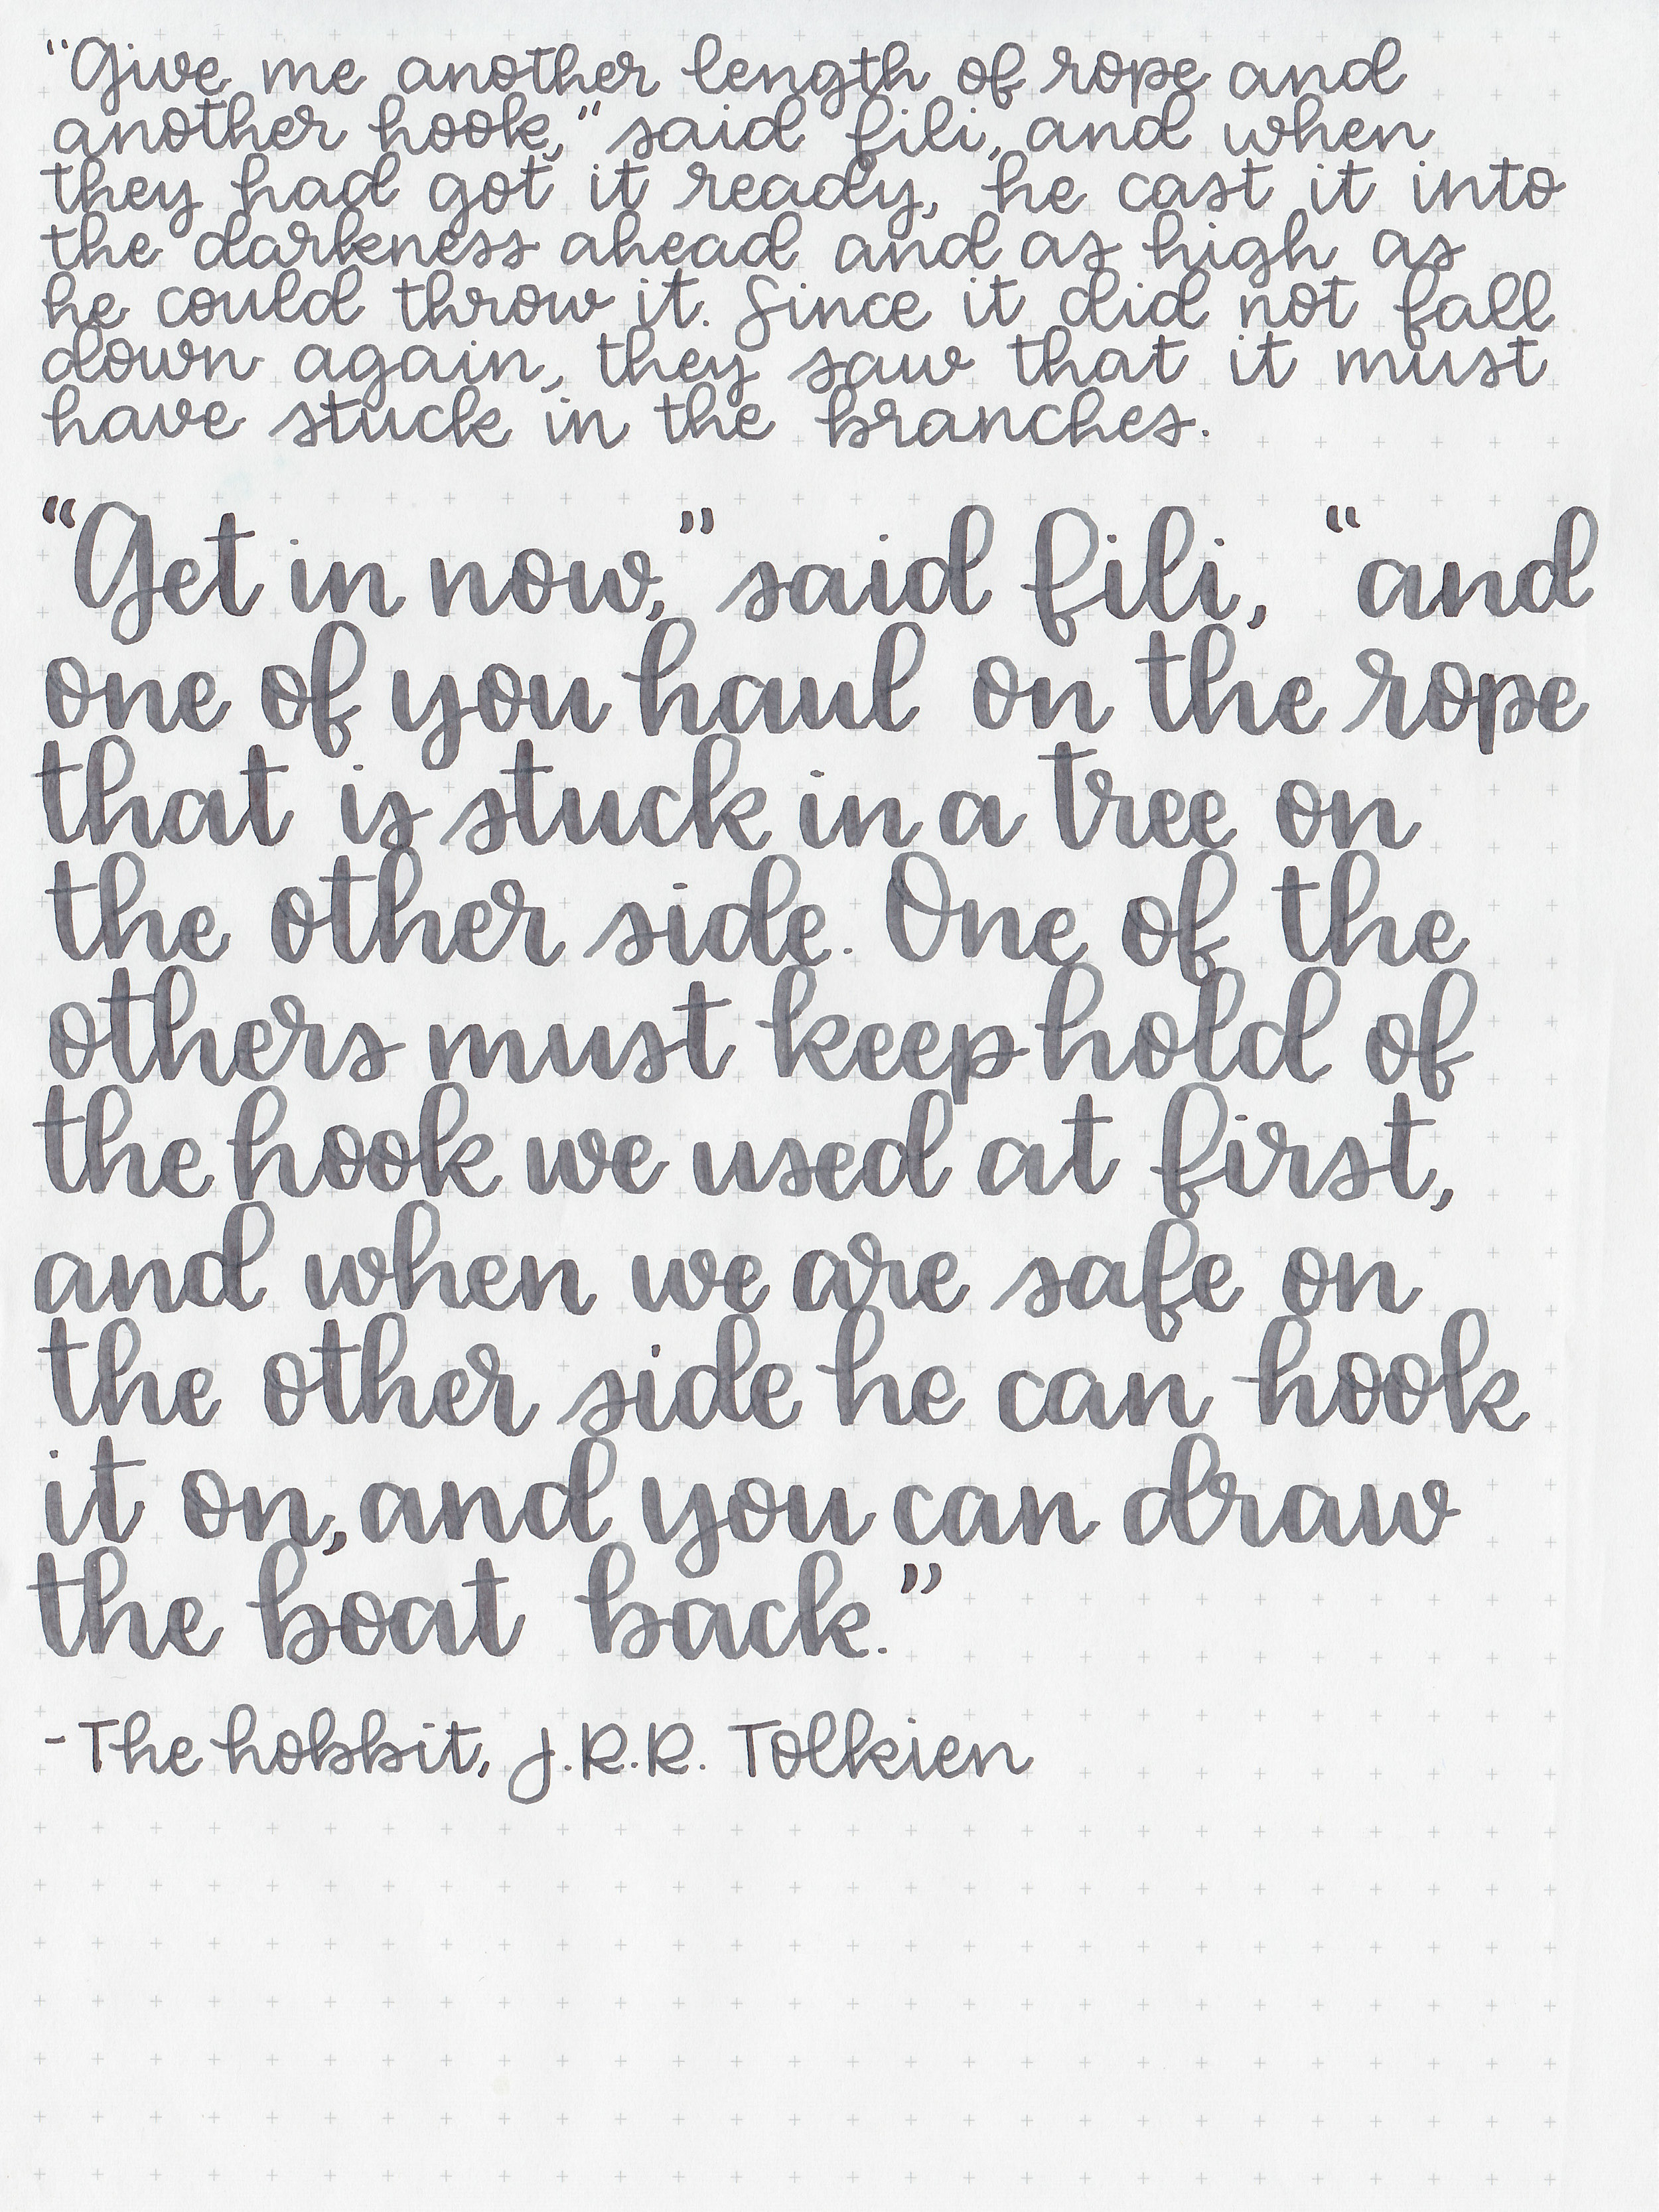 “Give me another length of rope and
another hook,” said fili, and when
they had got it ready, he cast it into
the darkness ahead and as high as
he could throw it. Since it did not fall
down again, they saw that it must
have stuck in the branches.
“Get in now,” said fili, “and
one of you haul on the rope
that is stuck in a tree on
the other side. One of the
others must keep hold of
the hook we used at first,
and when we are safe on
the other side he can hook
it on, and you can draw
the boat back.”
-The hobbit, J.R.R. Tolkien